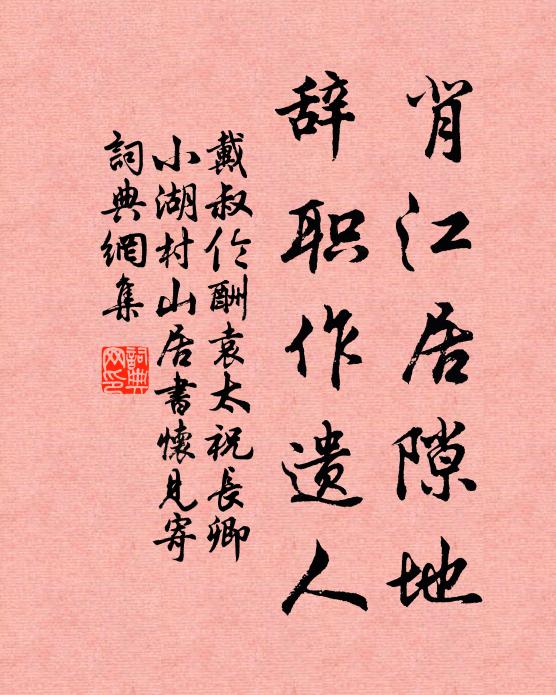 肖江居隙地
辞职作遗人
戴叔伦酬袁太祝長卿
小湖村山居書懷見寄
詞典網集
詞典網印